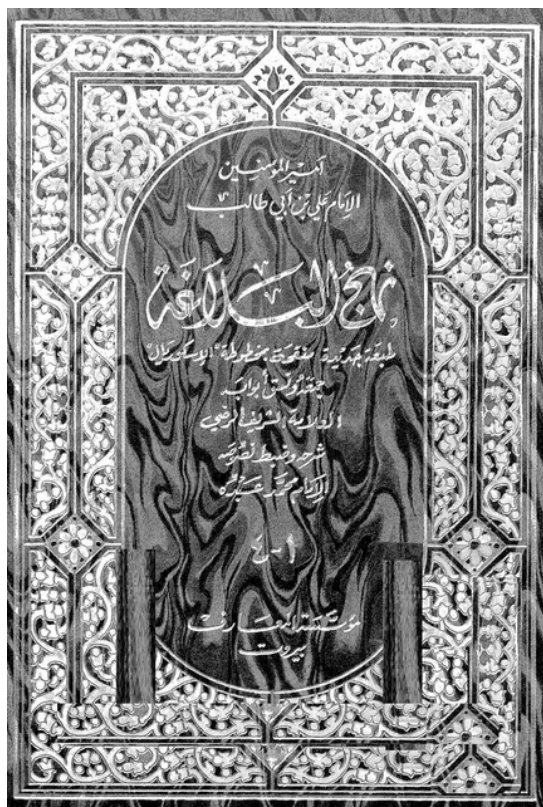 أمير المؤمنين
الإمام علي بن أبي طالب
نهج البلاغة
طبعة جديدة منقحة بمخطوطة "الإسكوريال"
جمعه ونسق أبوابه
العلامة الشريف الرضي
شرحه وضبط نصوصه
الإمام محمد عبده
١-٤
مؤسسة المعارف
بيروت